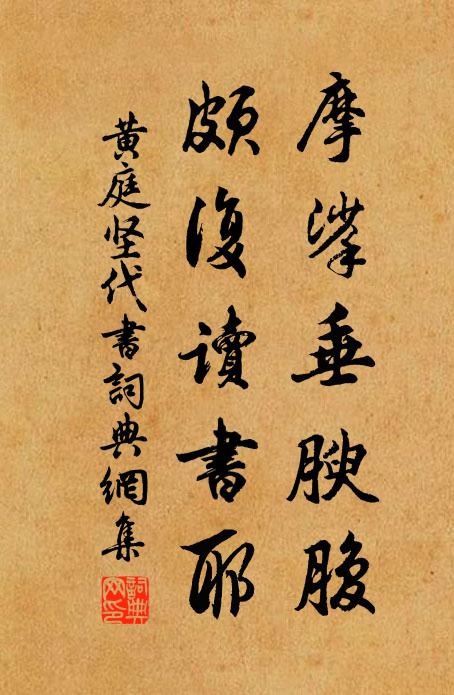 摩挲垂腴腹
頗復讀書耶
黄庭坚代書詞典網集
詞典網印